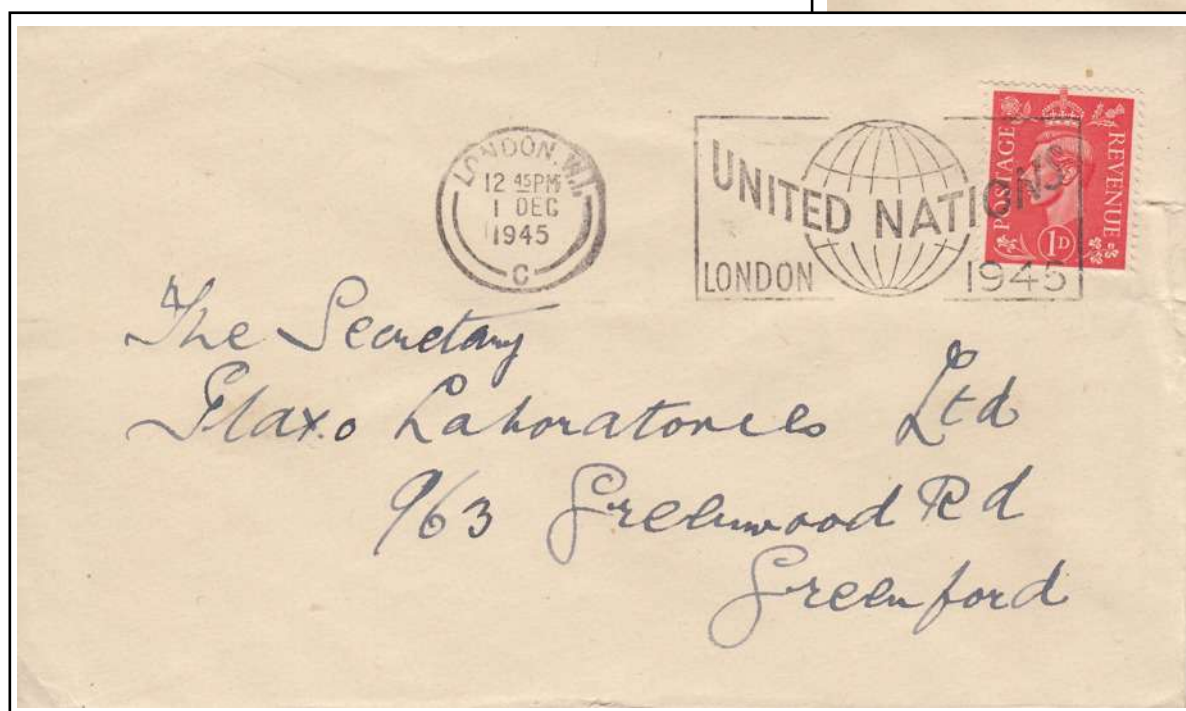 LONDON. W.1.
12 45PM
1 DEC
1945
C
UNITED NATIONS
LONDON 1945
POSTAGE REVENUE
1D
The Secretary
Glaxo Laboratories Ltd
963 Greenwood Rd
Greenford